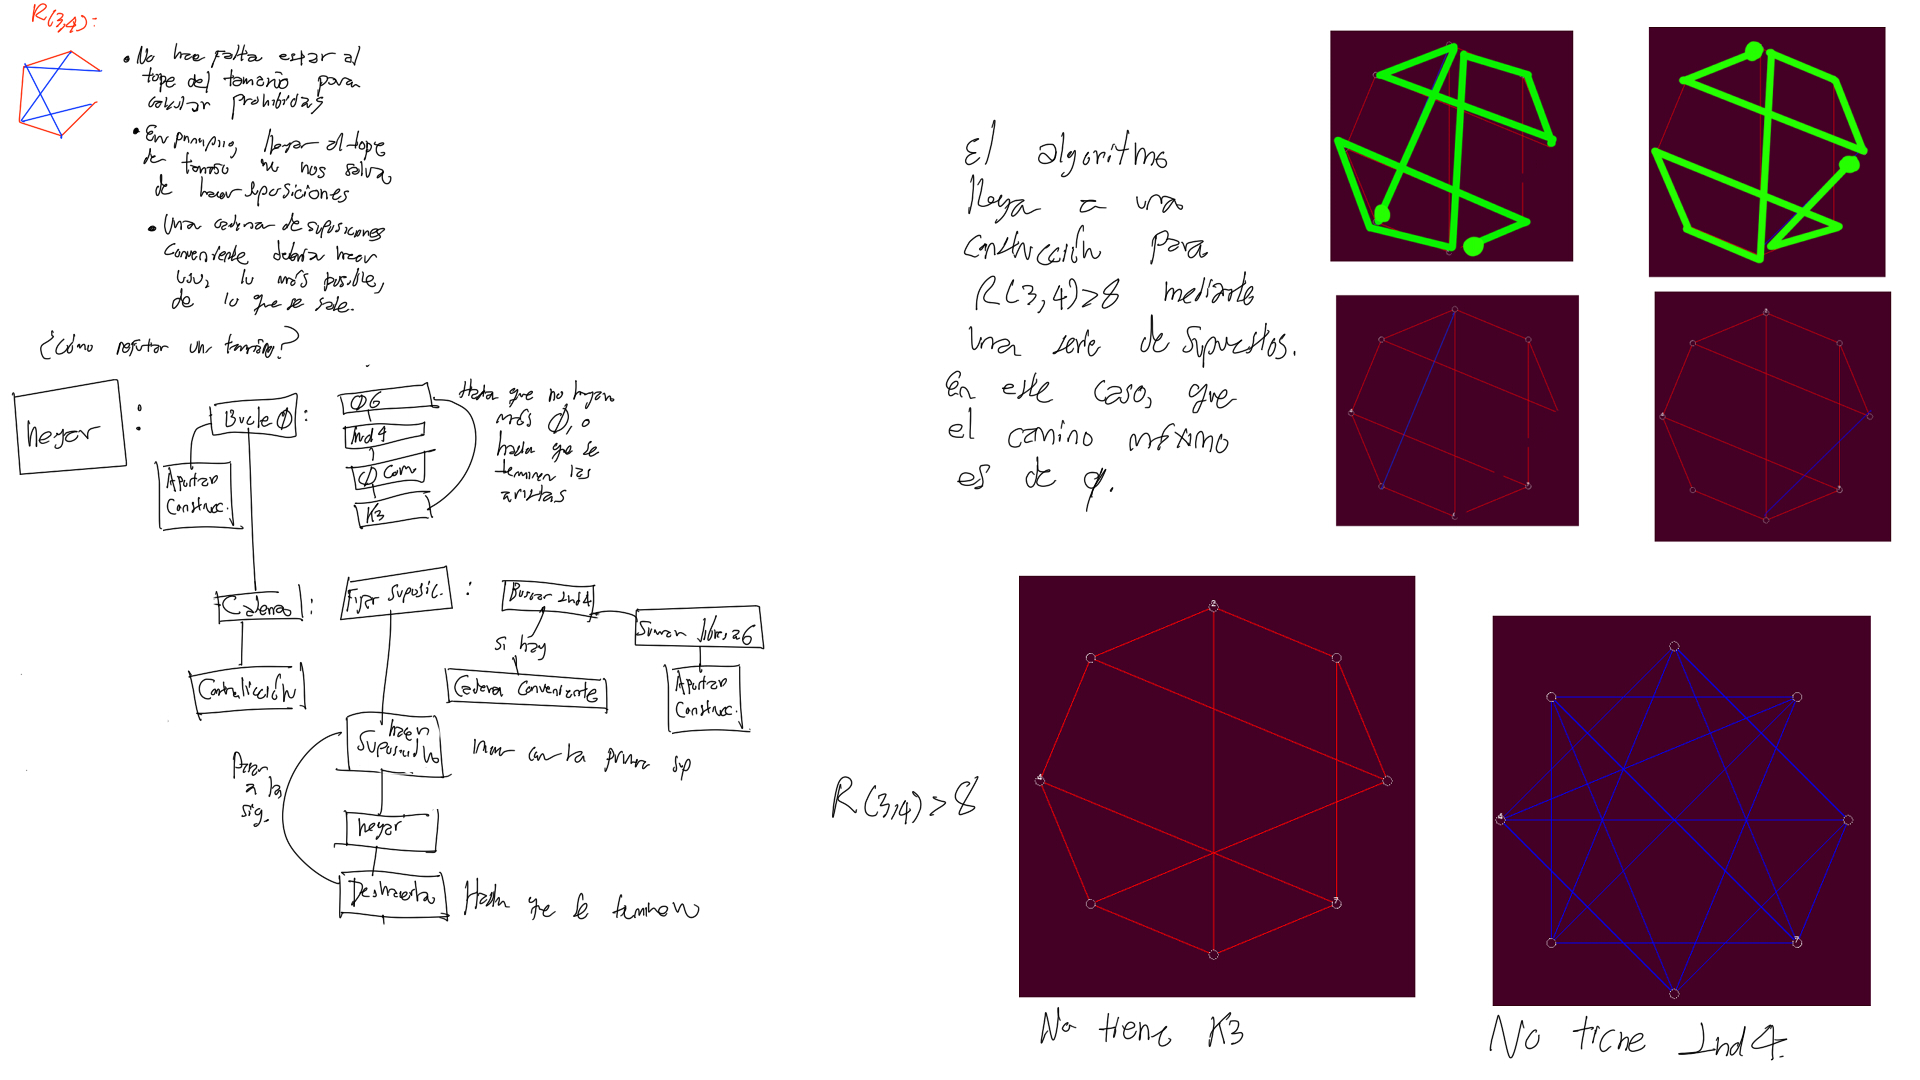 R(3,4):
• No hace falta estar al
tope del tamaño para
calcular prohibidas
• En principio, llegar al tope
de tamaño no nos salva
de hacer suposiciones
• Una cadena de suposiciones
conveniente debería hacer
uso, lo más posible,
de lo que se sabe.
¿Cómo refutar un tamaño?
:
Bucle Ø :
Apuntar
Construc.
Ø6
Ind4
Ø Com
K3
Hasta que no hayan
más Ø, o
hasta que se
terminen las
aristas
Cadenas :
Contradicción
Fijar Suposic. :
Buscar Ind4
si hay
Cadena Conveniente
Suman libres a 6
Apuntar
Construc.
hacer
Suposición
con la primera sup
Pasar
a la
sig.
Deshacerla
Hasta que se terminen
El algoritmo
llega a una
construcción para
R(3,4)>8 mediante
una serie de supuestos.
En este caso, que
el camino máximo
es de 9.
R(3,4)>8
2
4
7
No tiene K3
4
7
No tiene Ind4.